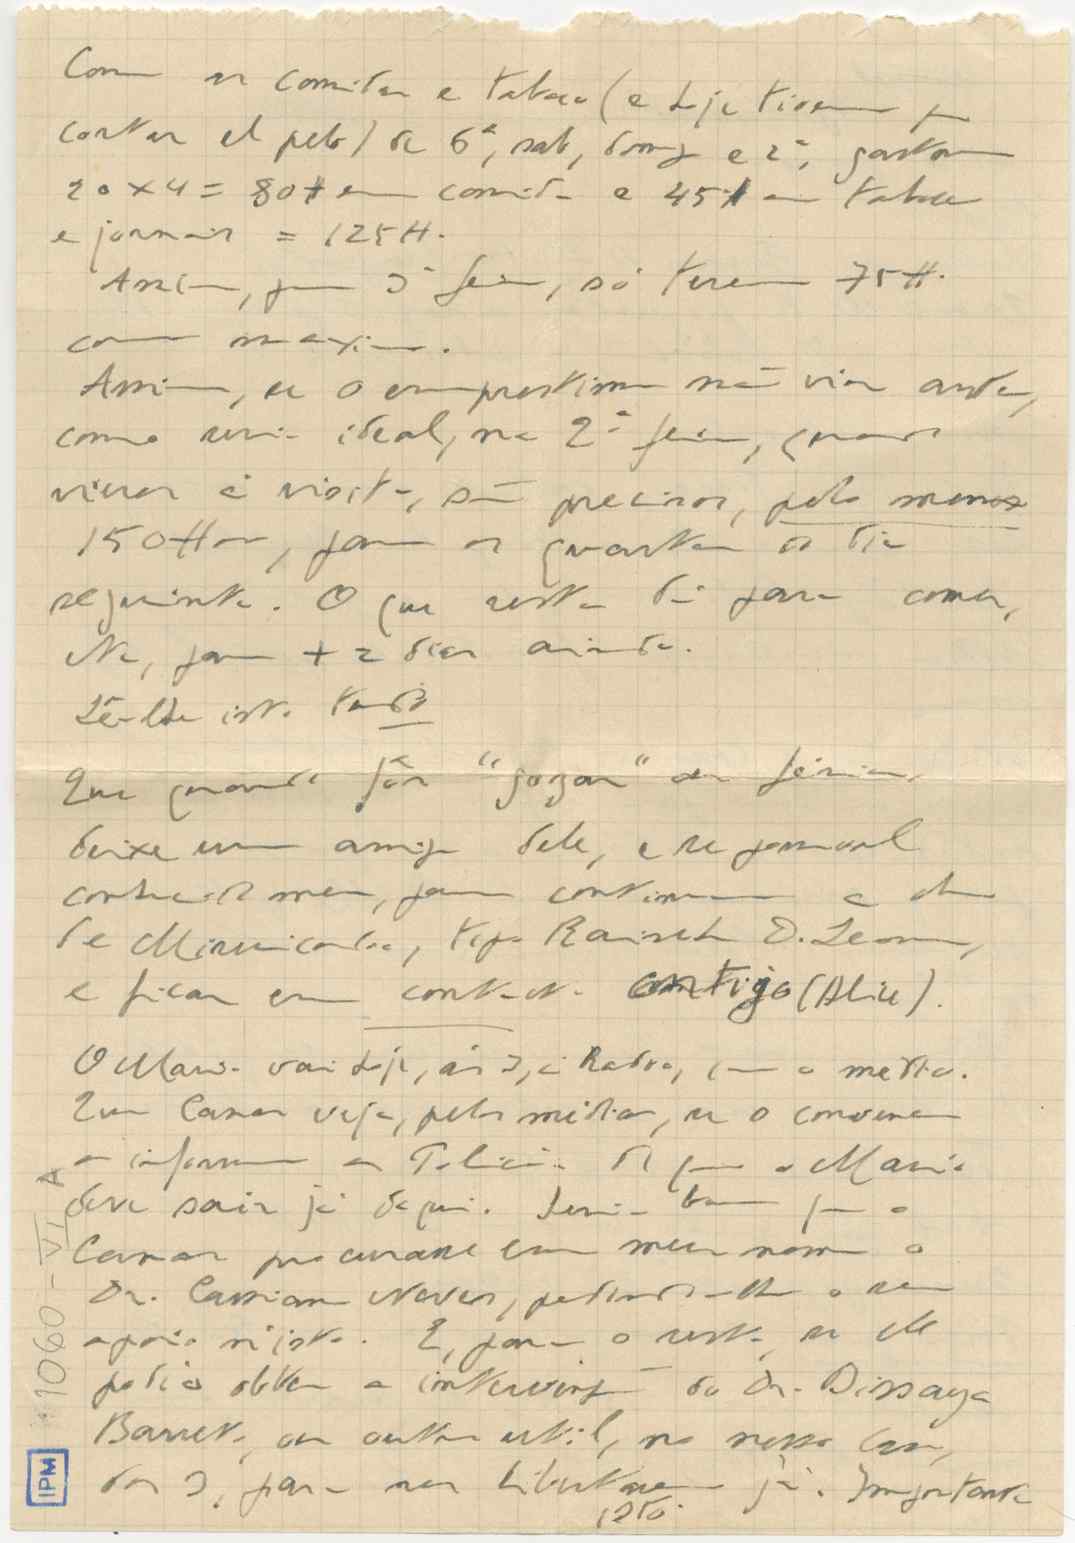 Com as comidas e tabaco (e hoje tivemos
cortar el pelo) de 6ª, sab, domg e 2ª, gastam
20 x 4 = 80$ em comida e 45$ em tabaco
e jornais = 125$.
Assim, para 3ª feira, só terem 75$.
como maximo.
Assim, se o emprestimo não vier antes,
como seria ideal, na 2ª feira, quando
vierem á visita, são precisos, pelo menos
150$00, para os quartos do dia
seguinte. O que resta dá para comer,
para + 2 dias ainda.
Lê-lhe isto tudo
Que quando fôr "gozar" as férias,
deixe um amigo dele, e se possivel
conhecido meu, para continuar a
de Misericordia, tipo D. Leonor,
e ficar em contacto contigo (Alice).
O Mario vai hoje, ás 3, á com o medico.
Que Cansado veja, pelos médicos, se o convencem
a informar a Policia de que o Mario
deve sair já daqui. Seria bom que o
procurasse em meu nome o
Dr. Cassiano Neves, pedindo-lhe o seu
apoio nisto. E, para o resto, se ele
podia obter a intervenção do Dr. Bissaya
Barreto, ou outra util, no nosso caso,
dos 3, para nos libertarem já. Importante
isto.
1060 - VI A
IPM